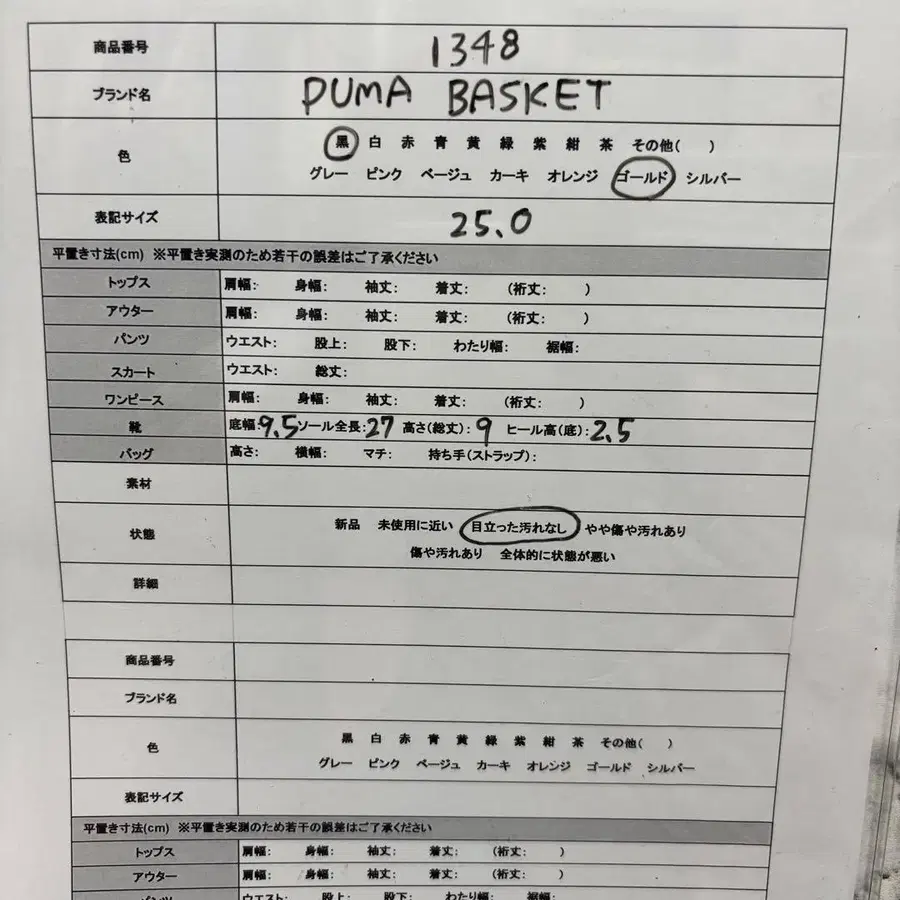 商品番号 1348
ブランド名 PUMA BASKET
色 黒 白 赤 青 黄 緑 紫 紺 茶 その他( )
グレー ピンク ベージュ カーキ オレンジ ゴールド シルバー
表記サイズ 25.0
平置き寸法(cm) ※平置き実測のため若干の誤差はご了承ください
トップス 肩幅: 身幅: 袖丈: 着丈: (裄丈: )
アウター 肩幅: 身幅: 袖丈: 着丈: (裄丈: )
パンツ ウエスト: 股上: 股下: わたり幅: 裾幅:
スカート ウエスト: 総丈:
ワンピース 肩幅: 身幅: 袖丈: 着丈: (裄丈: )
靴 底幅:9.5 ソール全長:27 高さ(総丈):9 ヒール高(底):2.5
バッグ 高さ: 横幅: マチ: 持ち手(ストラップ):
素材
状態 新品 未使用に近い 目立った汚れなし やや傷や汚れあり
傷や汚れあり 全体的に状態が悪い
詳細
商品番号
ブランド名
色 黒 白 赤 青 黄 緑 紫 紺 茶 その他( )
グレー ピンク ベージュ カーキ オレンジ ゴールド シルバー
表記サイズ
平置き寸法(cm) ※平置き実測のため若干の誤差はご了承ください
トップス 肩幅: 身幅: 袖丈: 着丈: (裄丈: )
アウター 肩幅: 身幅: 袖丈: 着丈: (裄丈: )
パンツ ウエスト: 股上: 股下: わたり幅: 裾幅: